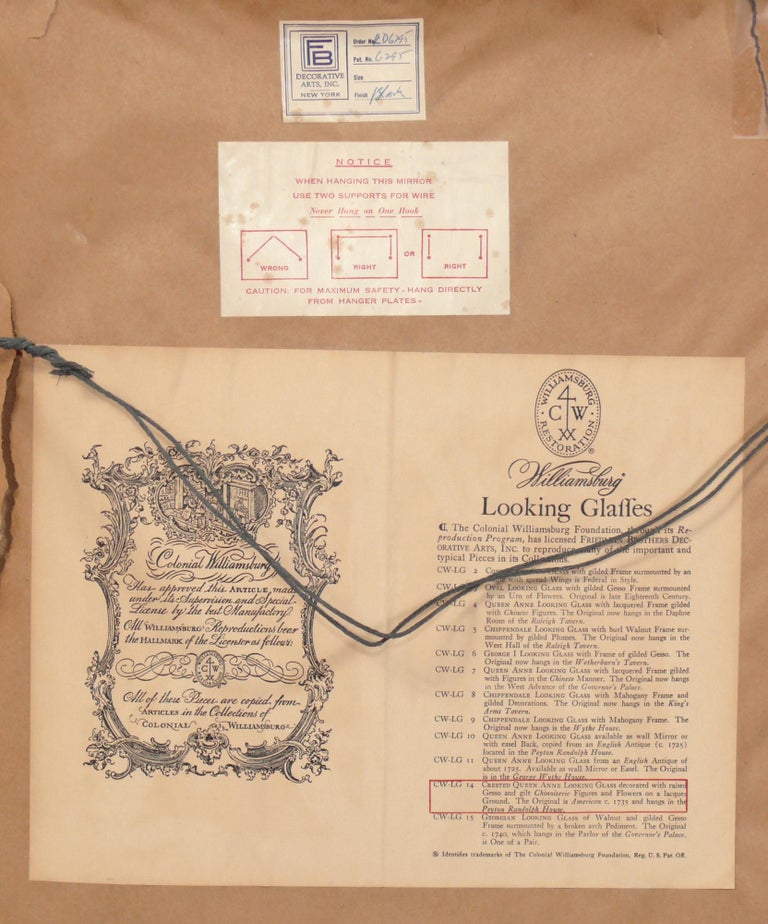 FB
DECORATIVE
ARTS, INC.
NEW YORK
Order No. RD6295
Pat. No. 6295
Size
Finish Black
NOTICE
WHEN HANGING THIS MIRROR
USE TWO SUPPORTS FOR WIRE
Never Hang on One Hook
WRONG
RIGHT
OR
RIGHT
CAUTION: FOR MAXIMUM SAFETY - HANG DIRECTLY
FROM HANGER PLATES -
Colonial Williamsburg
Has approved this ARTICLE, made
under its Supervision and Special
License by the best Manufactory.
All WILLIAMSBURG Reproductions bear
the HALLMARK of the Licensor as follows:
CW
All of these Pieces are copied from
ARTICLES in the Collections of
COLONIAL WILLIAMSBURG
WILLIAMSBURG
CW
RESTORATION ®
Williamsburg
Looking Glaſſes
¶. The Colonial Williamsburg Foundation, through its Re-
production Program, has licensed FRIEDMAN BROTHERS DEC-
ORATIVE ARTS, INC. to reproduce many of the important and
typical Pieces in its Collections.
CW-LG 2 GLASS with gilded Frame surmounted by an
with spread Wings is Federal in Style.
OVAL LOOKING GLASS with gilded Gesso Frame surmounted
by an Urn of Flowers. Original is late Eighteenth Century.
CW-LG 4 QUEEN ANNE LOOKING GLASS with lacquered Frame gilded
with Chinese Figures. The Original now hangs in the Daphne
Room of the Raleigh Tavern.
CW-LG 5 CHIPPENDALE LOOKING GLASS with burl Walnut Frame sur-
mounted by gilded Plumes. The Original now hangs in the
West Hall of the Raleigh Tavern.
CW-LG 6 GEORGE I LOOKING GLASS with Frame of gilded Gesso. The
Original now hangs in the Wetherburn's Tavern.
CW-LG 7 QUEEN ANNE LOOKING GLASS with lacquered Frame gilded
with Figures in the Chinese Manner. The Original now hangs
in the West Advance of the Governor's Palace.
CW-LG 8 CHIPPENDALE LOOKING GLASS with Mahogany Frame and
gilded Decorations. The Original now hangs in the King's
Arms Tavern.
CW-LG 9 CHIPPENDALE LOOKING GLASS with Mahogany Frame. The
Original now hangs in the Wythe House.
CW-LG 10 QUEEN ANNE LOOKING GLASS available as wall Mirror or
with easel Back, copied from an English Antique (c. 1725)
located in the Peyton Randolph House.
CW-LG 11 QUEEN ANNE LOOKING GLASS from an English Antique of
about 1725. Available as wall Mirror or Easel. The Original
is in the George Wythe House.
CW-LG 14 CRESTED QUEEN ANNE LOOKING GLASS decorated with raised
Gesso and gilt Chinoiserie Figures and Flowers on a lacquer
Ground. The Original is American c. 1735 and hangs in the
Peyton Randolph House.
CW-LG 15 GEORGIAN LOOKING GLASS of Walnut and gilded Gesso
Frame surmounted by a broken arch Pediment. The Original
c. 1740, which hangs in the Parlor of the Governor's Palace,
is One of a Pair.
® Identifies trademarks of The Colonial Williamsburg Foundation, Reg. U. S. Pat. Off.